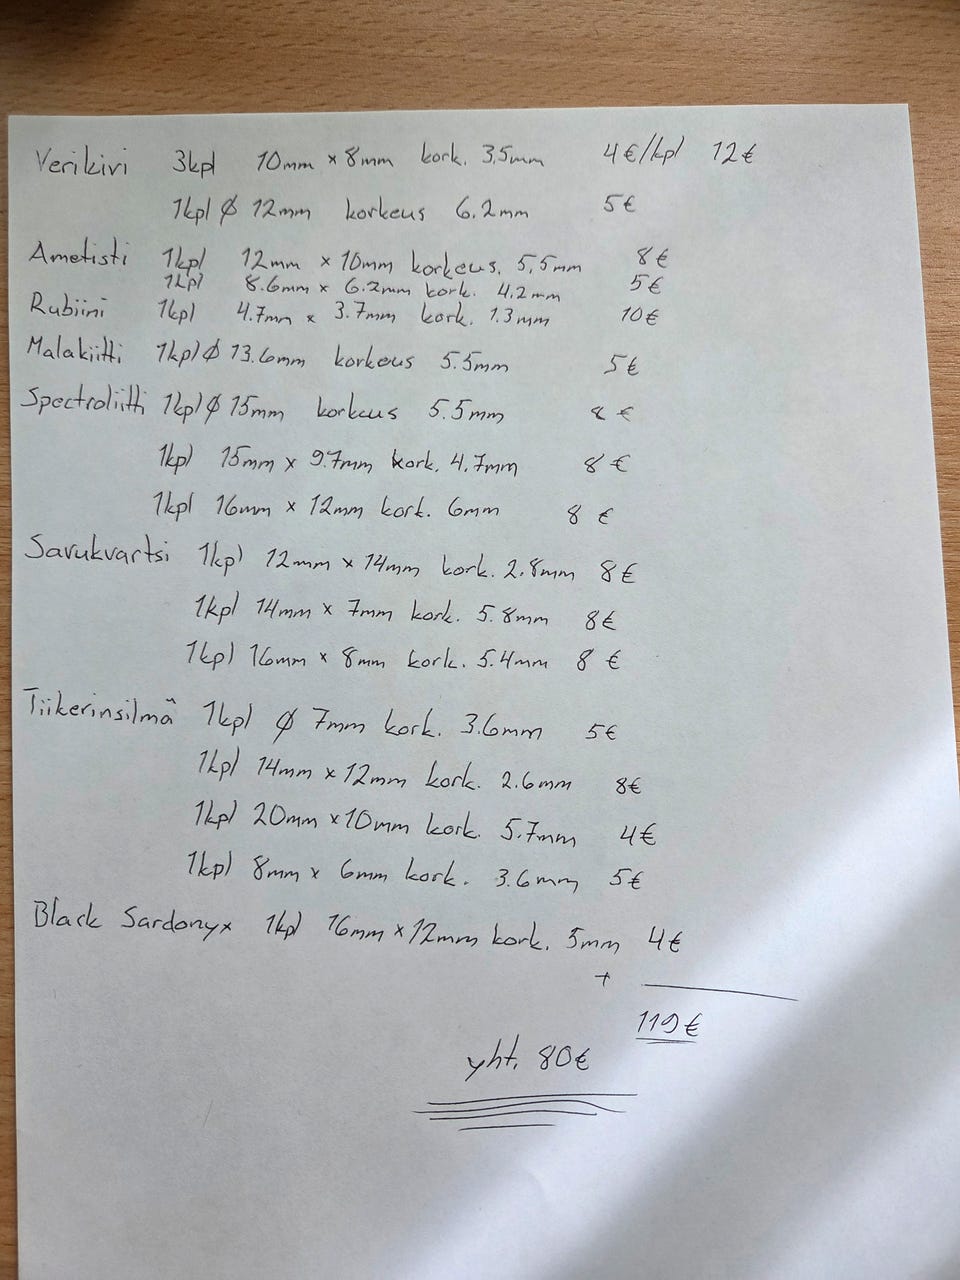 Verikivi 3kpl 10mm x 8mm kork. 3.5mm 4€/kpl 12€
1kpl Ø 12mm korkeus 6.2mm 5€
Ametisti 1kpl 12mm x 10mm korkeus. 5,5mm 8€
1kpl 8.6mm x 6.2mm kork. 4.2mm 5€
Rubiini 1kpl 4.7mm x 3.7mm kork. 1.3mm 10€
Malakiitti 1kpl Ø 13.6mm korkeus 5.5mm 5€
Spectroliitti 1kpl Ø 15mm korkeus 5.5mm 8 €
1kpl 15mm x 9.7mm kork. 4.7mm 8 €
1kpl 16mm x 12mm kork. 6mm 8 €
Savukvartsi 1kpl 12mm x 14mm kork. 2.8mm 8€
1kpl 14mm x 7mm kork. 5.8mm 8€
1kpl 16mm x 8mm kork. 5.4mm 8 €
Tiikerinsilmä 1kpl Ø 7mm kork. 3.6mm 5€
1kpl 14mm x 12mm kork. 2.6mm 8€
1kpl 20mm x 10mm kork. 5.7mm 4€
1kpl 8mm x 6mm kork. 3.6mm 5€
Black Sardonyx 1kpl 16mm x 12mm kork. 5mm 4€
+
119€
yht. 80€